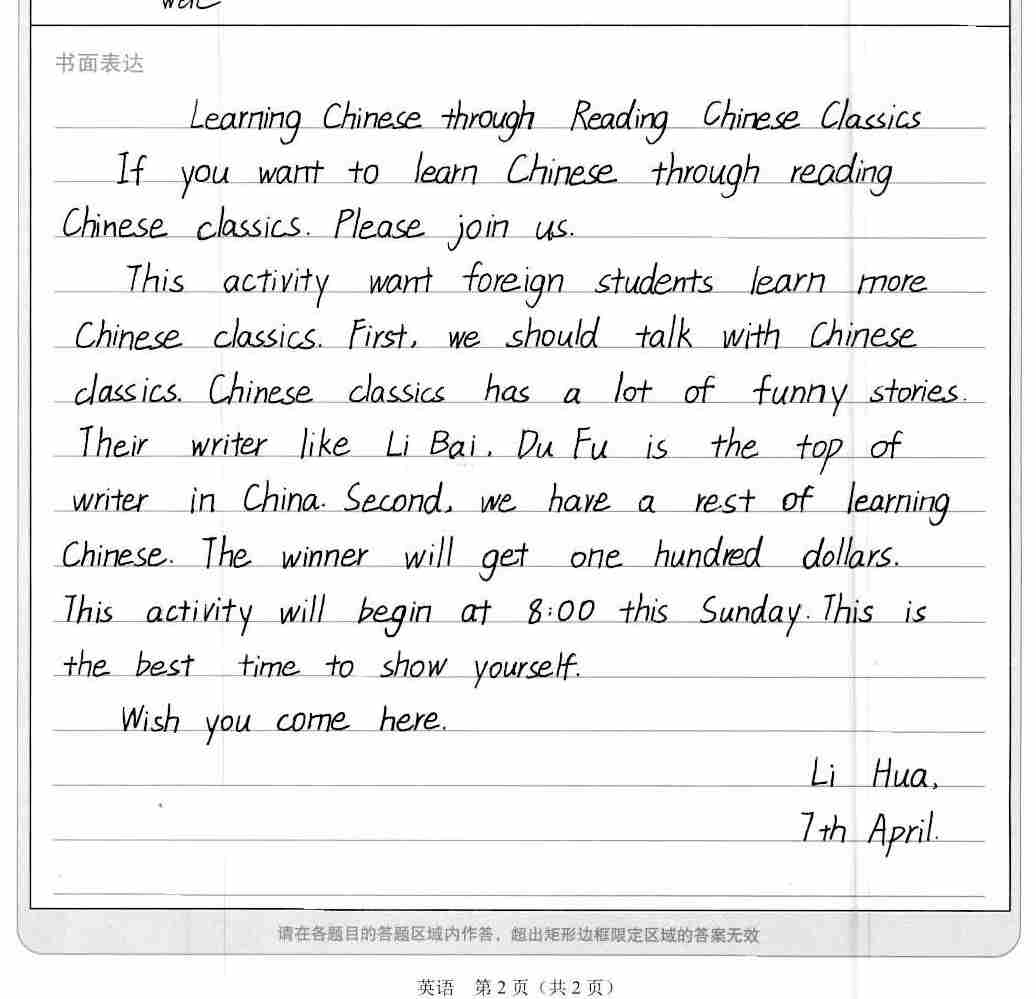 书面表达
Learning Chinese through Reading Chinese Classics
If you want to learn Chinese through reading
Chinese classics. Please join us.
This activity want foreign students learn more
Chinese classics. First, we should talk with Chinese
classics. Chinese classics has a lot of funny stories.
Their writer like Li Bai, Du Fu is the top of
writer in China. Second, we have a rest of learning
Chinese. The winner will get one hundred dollars.
This activity will begin at 8:00 this Sunday. This is
the best time to show yourself.
Wish you come here.
Li Hua,
7th April.
请在各题目的答题区域内作答，超出矩形边框限定区域的答案无效
英语 第2页（共2页）